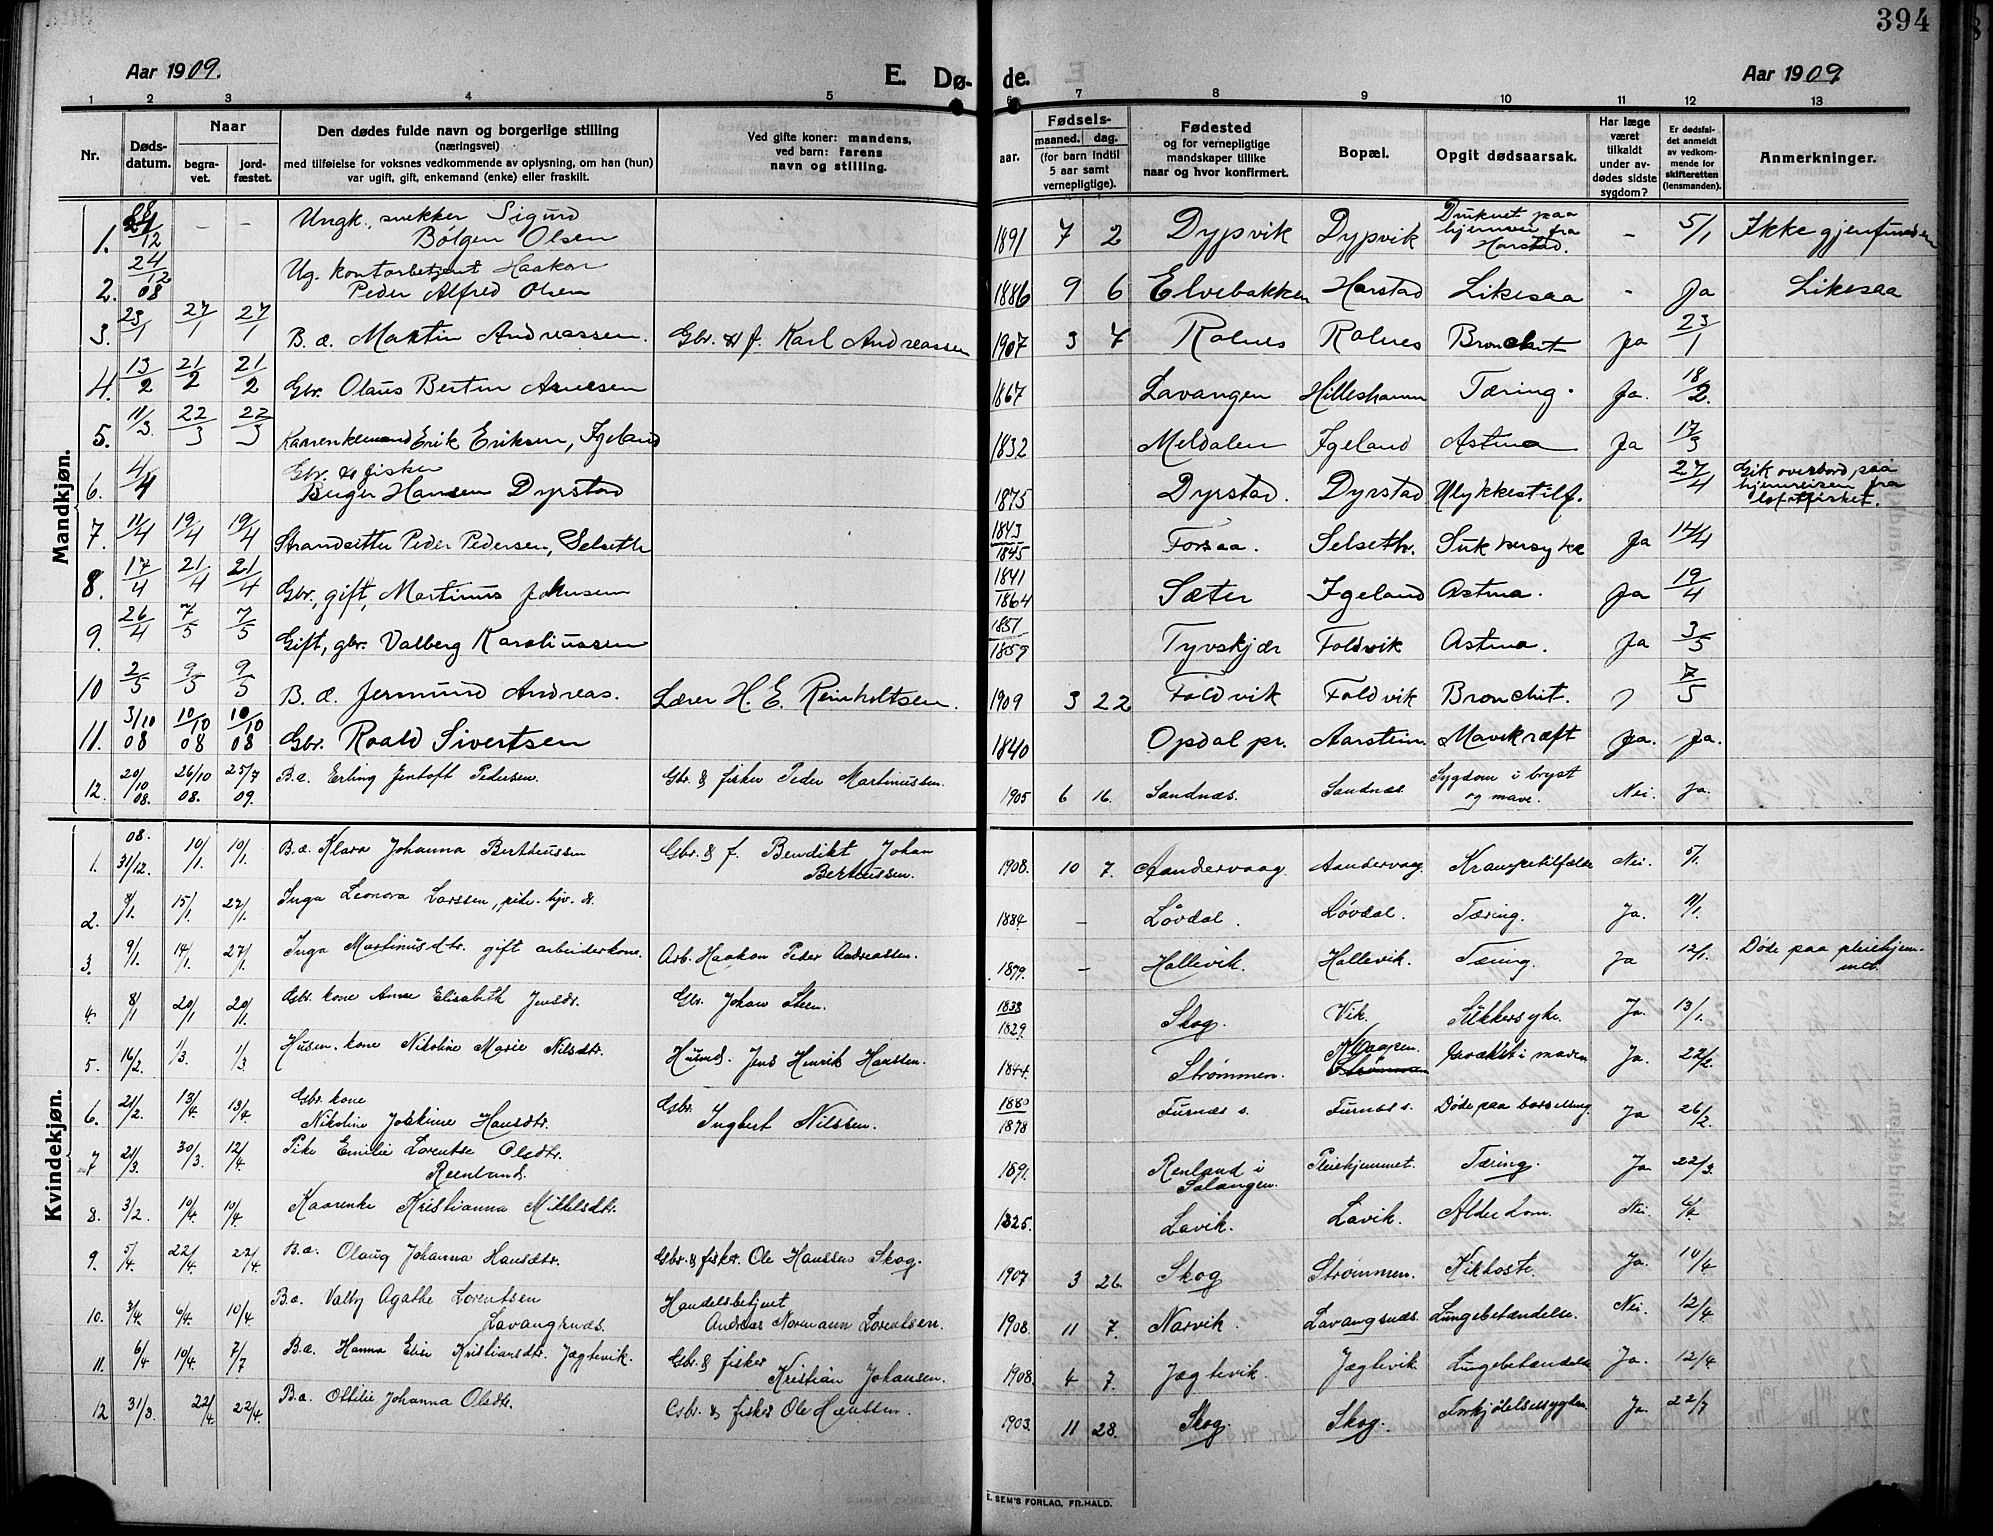 394
Aar 1909.
E. Dø- de.
Aar 1909
1 2 3 4 5 6 7 8 9 10 11 12 13
Nr.
Døds-datum.
Naar
begra-vet.
jord-fæstet.
Den dødes fulde navn og borgerlige stilling
(næringsvei)
med tilføielse for voksnes vedkommende av oplysning, om han (hun)
var ugift, gift, enkemand (enke) eller fraskilt.
Ved gifte koner: mandens,
ved barn: farens
navn og stilling.
Fødsels-
aar.
maaned. dag.
(for barn indtil
5 aar samt
vernepligtige).
Fødested
og for vernepligtige
mandskaper tillike
naar og hvor konfirmert.
Bopæl.
Opgit dødsaarsak.
Har læge
været
tilkaldt
under av-
dødes sidste
sygdom?
Er dødsfal-
det anmeldt
av vedkom-
mende for
skifteretten
(lensmanden).
Anmerkninger.
Mandkjøn.
1. 28/12 - - Ungk. snekker Sigurd
Bølgen Olsen 1891 7 2 Dypvik Dypvik Druknet paa
hjemvei fra
Harstad. - 5/1 Ikke gjenfunden
2. 24/12 08 Ug. kontorbetjent Haakon
Peder Alfred Olsen 1886 9 6 Elvebakken Harstad Likesaa - Ja Likesaa
3. 23/1 27/1 27/1 B. æ. Martin Andreassen. Gbr. & f. Karl Andreassen 1907 3 7 Rolnes Rolnes Bronchit Ja 23/1
4. 13/2 21/2 21/2 Gbr. Olaus Bertin Arnesen 1867 Lavangen Hilleshamn Tæring. Ja. 18/2.
5. 11/3. 22/3 22/3 Kaarenkemand Erik Eriksen, Igeland 1832 Meldalen Igeland Astma Ja 17/3
6. 4/4 Gbr. & fisker
Birger Hansen Dyrstad 1875 Dyrstad. Dyrstad Ulykkestilf. 27/4 Gik overbord paa
hjemreisen fra
lofotfisket.
7. 11/4 19/4 19/4 Strandsitter Peder Pedersen, Selseth 1843/1845 Forsaa. Selseth. Sukkersyke Ja 14/4
8. 17/4 21/4 21/4 Gbr., gift, Martinus Johnsen 1841/1864 Sæter Igeland Astma. Ja 19/4
9. 26/4 7/5 7/5 Gift, gbr. Valberg Karoliussen 1851/1859 Tyvskjær Foldvik Astma. Ja 3/5
10 2/5 9/5 9/5 B. æ. Jermund Andreas. Lærer H. E. Reinholtsen. 1909 3 22 Foldvik Foldvik Bronchit. J 7/5
11. 3/10 08 10/10 08 10/10 08 Gbr. Roald Sivertsen 1840 Opdal pr. Aarstein. Mavekræft Ja. Ja.
12. 20/10 08. 26/10 08. 25/7 09. B. æ. Erling Jentoft Pedersen. Gbr. & fisker Peder Martinussen. 1905 6 16. Sandnæs. Sandnæs. Sygdom i bryst
og mave. Nei. Ja.
Kvindekjøn.
1. 08. 31/12. 10/1. 10/1. B. æ. Klara Johanna Bertheussen Gbr. & f. Bendikt Johan
Bertheussen. 1908. 10 7. Aandervaag. Aandervaag Krampetilfælde Nei. 5/1.
2. 8/1. 15/1. 27/1. Inga Leonora Larssen, pike. 1884 - Løvdal. Løvdal. Tæring. Ja. 11/1.
3. 9/1. 14/1. 27/1. Inga Martinusdtr. gift arbeiderkone. Arb. Haakon Peder Andreassen. 1879. - Hallevik. Hallevik. Tæring. Ja 12/1. Døde paa pleiehjem-
met.
4. 8/1 20/1 20/1. Gbr. kone Anne Elisabeth Jensdtr. Gbr. Johan Steen. 1838/1829. Skog. Vik. Sukkersyke. Ja. 13/1.
5. 16/2. 1/3. 1/3 Husm. kone Nikoline Marie Nilsdtr. Husmd. Jens Henrik Hanssen. 1844. Strømmen. Strømmen i maven Ja. 22/2.
6. 21/2. 13/4. 13/4 Gbr. kone
Nikoline Joskine Hansdtr. Gbr.
Ingbert Nilssen. 1880/1878 Furnæs s. Furnæs s. Døde paa barselseng Ja 26/2
7 21/3. 30/3. 12/4. Pike Emilie Lorentse Olsdtr.
Reenland. 1891. Renland i
Salangen. Pleiehjemmet. Tæring. Ja 22/3.
8. 3/2. 10/4. 10/4 Kaarenke Kristianna Mikkelsdtr. 1825. Lavik. Lavik. Alderdom. Nei. 6/4
9. 5/4. 22/4. 22/4. B. æ. Olaug Johanna Hansdtr. Gbr. & fisker. Ole Hanssen Skog. 1907 3 26 Skog Strømmen. Kikhoste. Ja. 10/4
10. 3/4. 6/4. 10/4 B. æ. Valby Agathe Lorentsen
Lavangsnæs. Handelsbetjent
Andreas Normann Lorentsen. 1908. 11 7. Narvik. Lavangsnæs. Lungebetændelse. Nei. 12/4
11. 6/4 10/4. 7/7 B. æ. Hanna Elise Kristiansdtr. Jægtevik. Gbr. & fisker
Kristian Johansen. 1908. 4 7. Jægtevik. Jægtevik Lungebetændelse Ja. 12/4
12 31/3. 22/4. 22/4. B. æ. Ottilie Johanna Olsdtr. Gbr. & fisker Ole Hanssen. 1903. 11 28. Skog. Skog. Forkjølelsessygdom. Ja. 22/7
E. SEM'S FORLAG, FR.HALD.